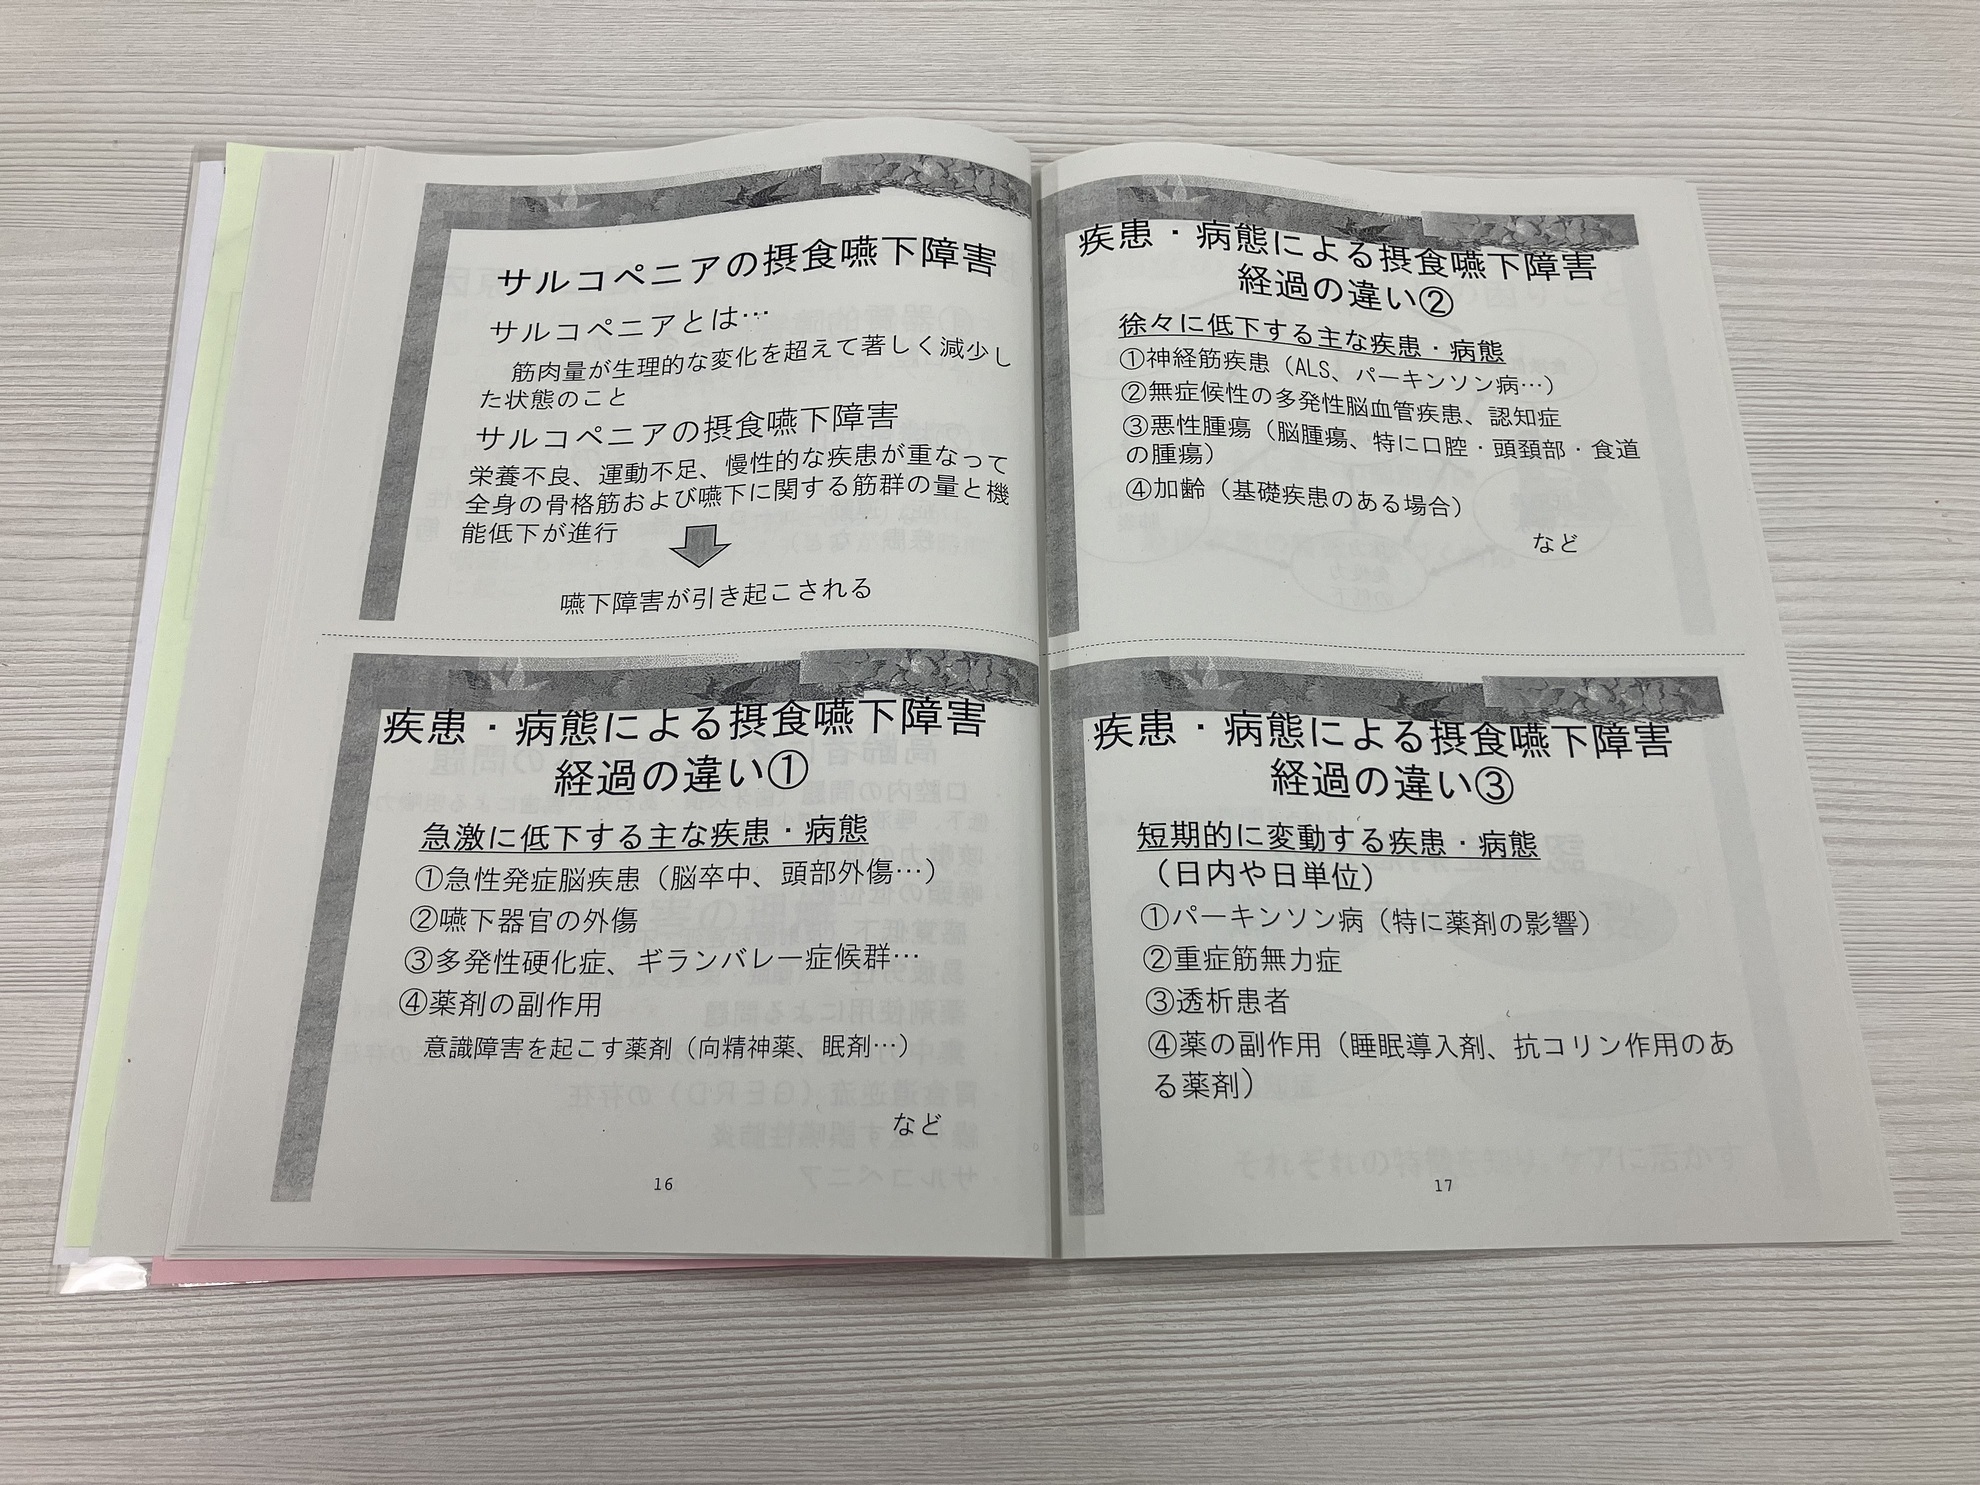 サルコペニアの摂食嚥下障害
サルコペニアとは…
筋肉量が生理的な変化を超えて著しく減少し
た状態のこと
サルコペニアの摂食嚥下障害
栄養不良、運動不足、慢性的な疾患が重なって
全身の骨格筋および嚥下に関する筋群の量と機
能低下が進行
嚥下障害が引き起こされる
疾患・病態による摂食嚥下障害
経過の違い①
急激に低下する主な疾患・病態
①急性発症脳疾患（脳卒中、頭部外傷…）
②嚥下器官の外傷
③多発性硬化症、ギランバレー症候群…
④薬剤の副作用
意識障害を起こす薬剤（向精神薬、眠剤…）
など
16
疾患・病態による摂食嚥下障害
経過の違い②
徐々に低下する主な疾患・病態
①神経筋疾患（ALS、パーキンソン病…）
②無症候性の多発性脳血管疾患、認知症
③悪性腫瘍（脳腫瘍、特に口腔・頭頚部・食道
の腫瘍）
④加齢（基礎疾患のある場合）
など
疾患・病態による摂食嚥下障害
経過の違い③
短期的に変動する疾患・病態
（日内や日単位）
①パーキンソン病（特に薬剤の影響）
②重症筋無力症
③透析患者
④薬の副作用（睡眠導入剤、抗コリン作用のあ
る薬剤）
17